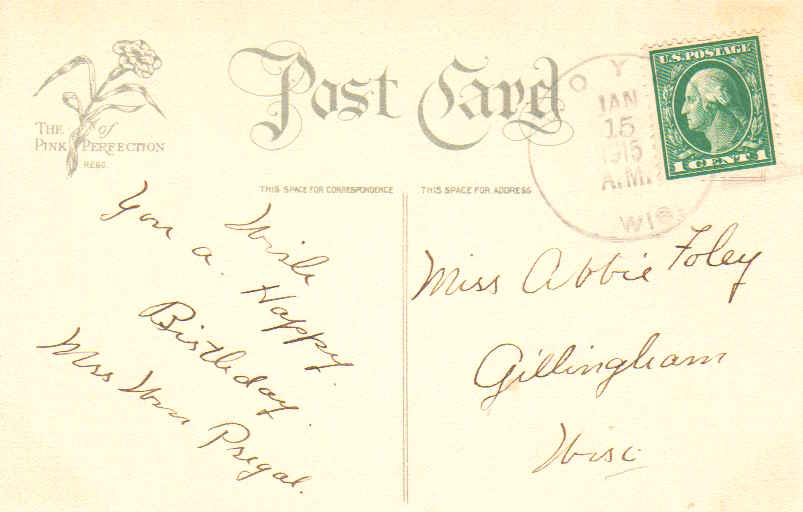 Post Card
THE of
PINK PERFECTION
REGD.
THIS SPACE FOR CORRESPONDENCE
THIS SPACE FOR ADDRESS
O Y
JAN
15
1915
A.M.
WIS.
U.S. POSTAGE
1 CENT 1
Wish
You a. Happy.
Birthday.
Mrs Wm Pregal.
Miss Abbie Foley
Gillingham
Wisc